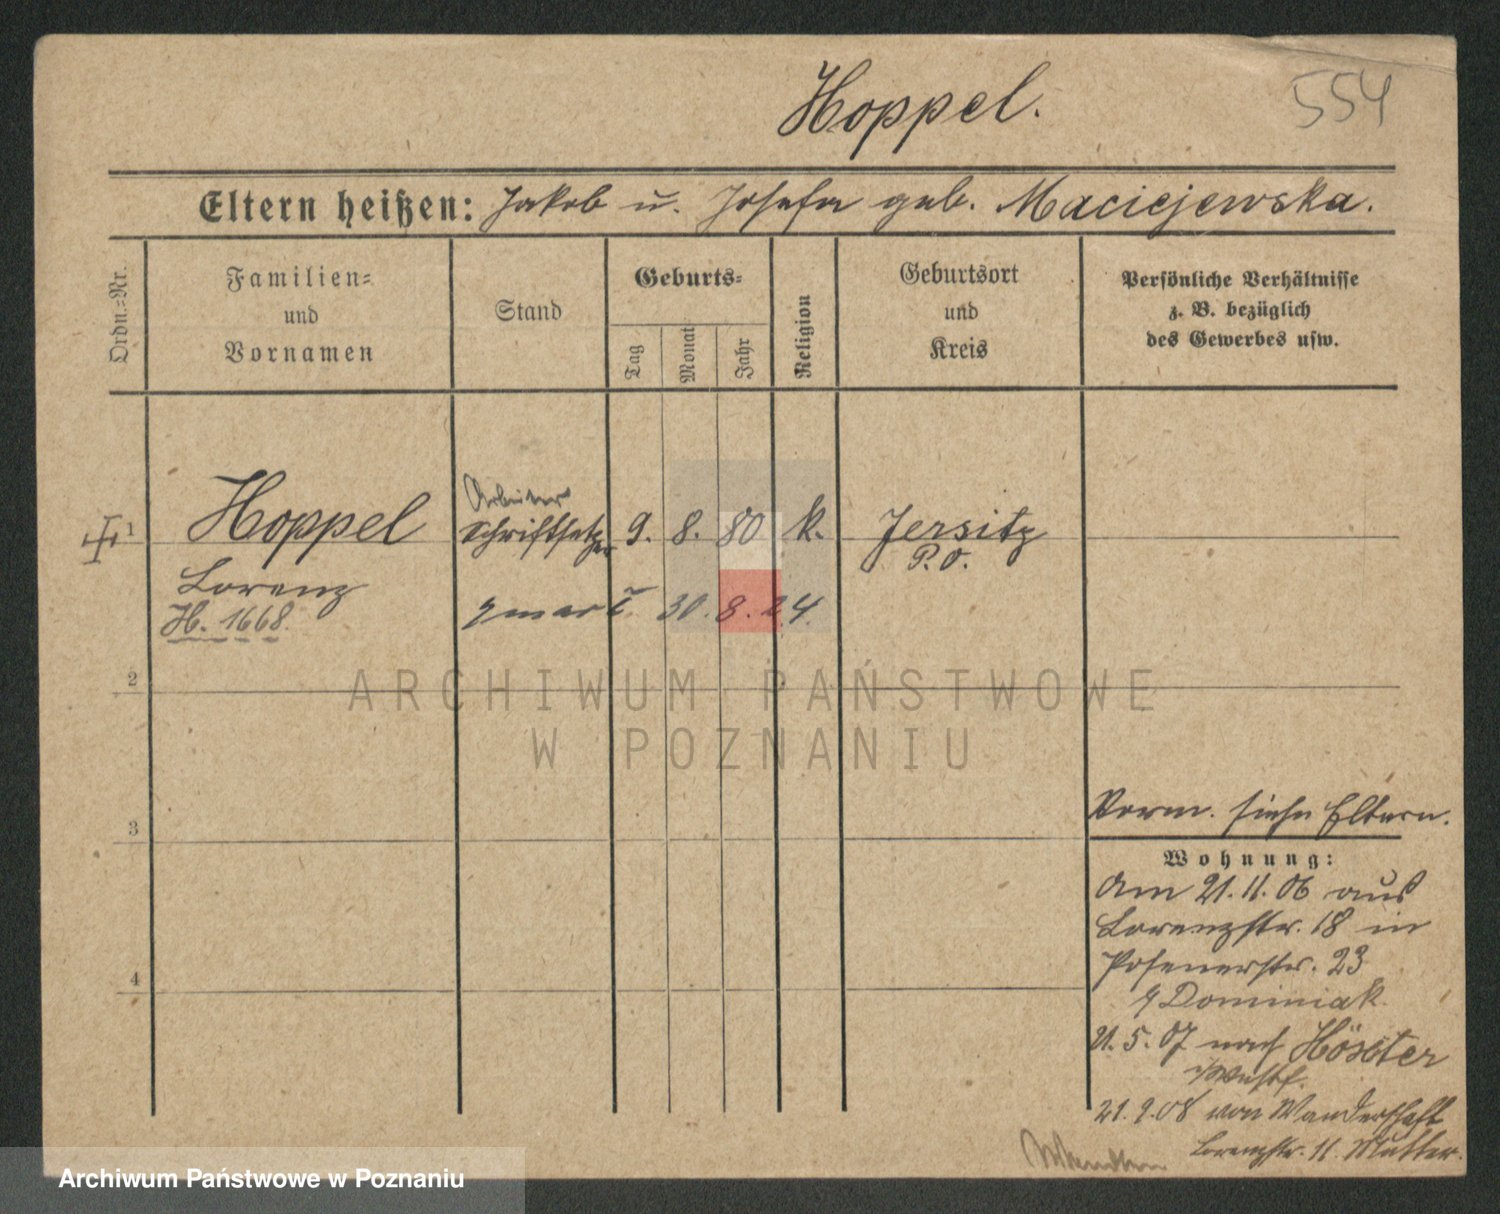 Hoppel.
554
Eltern heißen: Jakob u. Josefa geb. Maciejewska.
Ordn.=Nr.
Familien=
und
Vornamen
Stand
Geburts=
Tag
Monat
Jahr
Religion
Geburtsort
und
Kreis
Persönliche Verhältnisse
z. B. bezüglich
des Gewerbes usw.
Arbeiter
1 Hoppel Schriftsetzer 9. 8. 80 k. Jersitz
P.O.
Lorenz
H. 1668. zmarł. 30. 8. 24.
2
ARCHIWUM PAŃSTWOWE
W POZNANIU
Vorm. siehe Eltern.
3
Wohnung:
Am 21. 11. 06 aus
Lorenzstr. 18 in
Posenerstr. 23
4
Dominiak
21. 5. 07 nach Höxter
i/Westf.
21. 9. 08 von Wanderschaft
Lorenzstr. 11. Mutter.
Archiwum Państwowe w Poznaniu